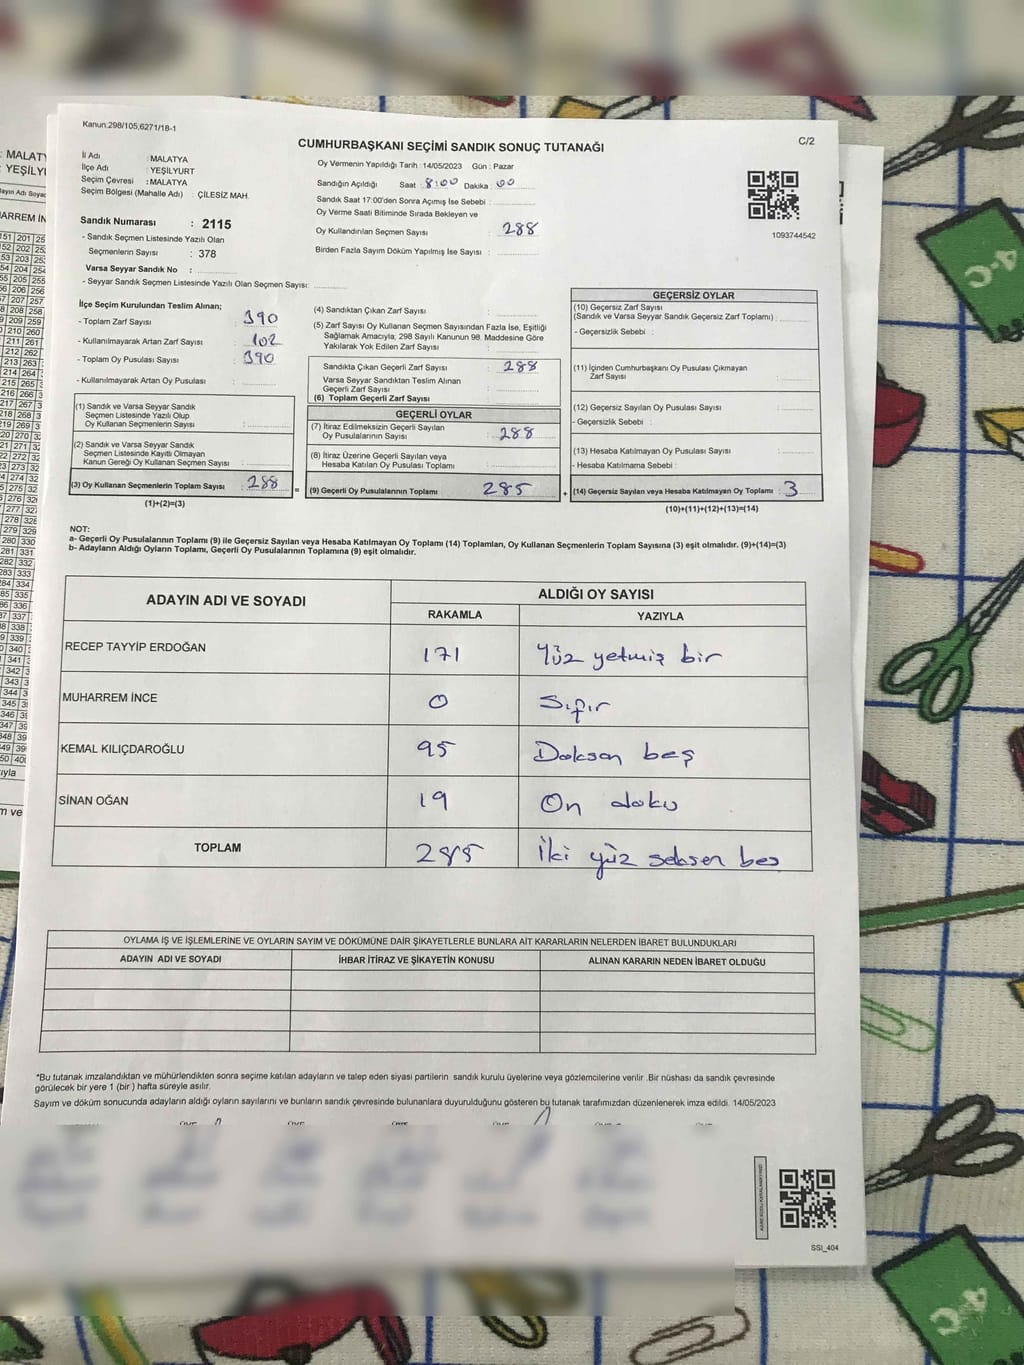 Kanun.298/105,6271/18-1
C/2
CUMHURBAŞKANI SEÇİMİ SANDIK SONUÇ TUTANAĞI
İl Adı : MALATYA
İlçe Adı : YEŞİLYURT
Seçim Çevresi : MALATYA
Seçim Bölgesi (Mahalle Adı) : ÇİLESİZ MAH.
Oy Vermenin Yapıldığı Tarih : 14/05/2023 Gün : Pazar
Sandığın Açıldığı Saat : 8:00 Dakika : 00
Sandık Saat 17:00'den Sonra Açımış İse Sebebi :
Oy Verme Saati Bitiminde Sırada Bekleyen ve
Oy Kullandırılan Seçmen Sayısı : 288
Birden Fazla Sayım Döküm Yapılmış İse Sayısı :
1093744542
Sandık Numarası : 2115
- Sandık Seçmen Listesinde Yazılı Olan
Seçmenlerin Sayısı : 378
Varsa Seyyar Sandık No :
- Seyyar Sandık Seçmen Listesinde Yazılı Olan Seçmen Sayısı:
İlçe Seçim Kurulundan Teslim Alınan;
- Toplam Zarf Sayısı : 390
- Kullanılmayarak Artan Zarf Sayısı : 102
- Toplam Oy Pusulası Sayısı : 390
- Kullanılmayarak Artan Oy Pusulası :
(1) Sandık ve Varsa Seyyar Sandık
Seçmen Listesinde Yazılı Olup
Oy Kullanan Seçmenlerin Sayıtı :
(2) Sandık ve Varsa Seyyar Sandık
Seçmen Listesinde Kayıtlı Olmayan
Kanun Gereği Oy Kullanan Seçmen Sayısı :
(3) Oy Kullanan Seçmenlerin Toplam Sayısı : 288
(1)+(2)=(3)
(4) Sandıktan Çıkan Zarf Sayısı :
(5) Zarf Sayısı Oy Kullanan Seçmen Sayısından Fazla İse, Eşitliği
Sağlamak Amacıyla; 298 Sayılı Kanunun 98. Maddesine Göre
Yakılarak Yok Edilen Zarf Sayısı :
Sandıkta Çıkan Geçerli Zarf Sayısı : 288
Varsa Seyyar Sandıktan Teslim Alınan
Geçerli Zarf Sayısı :
(6) Toplam Geçerli Zarf Sayısı :
GEÇERLİ OYLAR
(7) İtiraz Edilmeksizin Geçerli Sayılan
Oy Pusulalarının Sayısı : 288
(8) İtiraz Üzerine Geçerli Sayılan veya
Hesaba Katılan Oy Pusulası Toplamı :
= (9) Geçerli Oy Pusulalarının Toplamı : 285
GEÇERSİZ OYLAR
(10) Geçersiz Zarf Sayısı
(Sandık ve Varsa Seyyar Sandık Geçersiz Zarf Toplamı) :
- Geçersizlik Sebebi :
(11) İçinden Cumhurbaşkanı Oy Pusulası Çıkmayan
Zarf Sayısı :
(12) Geçersiz Sayılan Oy Pusulası Sayısı :
- Geçersizlik Sebebi :
(13) Hesaba Katılmayan Oy Pusulası Sayısı :
- Hesaba Katılmama Sebebi :
+ (14) Geçersiz Sayılan veya Hesaba Katılmayan Oy Toplamı : 3
(10)+(11)+(12)+(13)=(14)
NOT:
a- Geçerli Oy Pusulalarının Toplamı (9) ile Geçersiz Sayılan veya Hesaba Katılmayan Oy Toplamı (14) Toplamları, Oy Kullanan Seçmenlerin Toplam Sayısına (3) eşit olmalıdır. (9)+(14)=(3)
b- Adayların Aldığı Oyların Toplamı, Geçerli Oy Pusulalarının Toplamına (9) eşit olmalıdır.
ADAYIN ADI VE SOYADI
ALDIĞI OY SAYISI
RAKAMLA YAZIYLA
RECEP TAYYİP ERDOĞAN 171 Yüz yetmiş bir
MUHARREM İNCE 0 Sıfır
KEMAL KILIÇDAROĞLU 95 Doksan beş
SİNAN OĞAN 19 On doku
TOPLAM 285 İki yüz seksen beş
OYLAMA İŞ VE İŞLEMLERİNE VE OYLARIN SAYIM VE DÖKÜMÜNE DAİR ŞİKAYETLERLE BUNLARA AİT KARARLARIN NELERDEN İBARET BULUNDUKLARI
ADAYIN ADI VE SOYADI İHBAR İTİRAZ VE ŞİKAYETİN KONUSU ALINAN KARARIN NEDEN İBARET OLDUĞU
*Bu tutanak imzalandıktan ve mühürlendikten sonra seçime katılan adayların ve talep eden siyasi partilerin sandık kurulu üyelerine veya gözlemcilerine verilir .Bir nüshası da sandık çevresinde
görülecek bir yere 1 (bir ) hafta süreyle asılır.
Sayım ve döküm sonucunda adayların aldığı oyların sayılarını ve bunların sandık çevresinde bulunanlara duyurulduğunu gösteren bu tutanak tarafımızdan düzenlenerek imza edildi. 14/05/2023
SSI_404
4-C
4-C